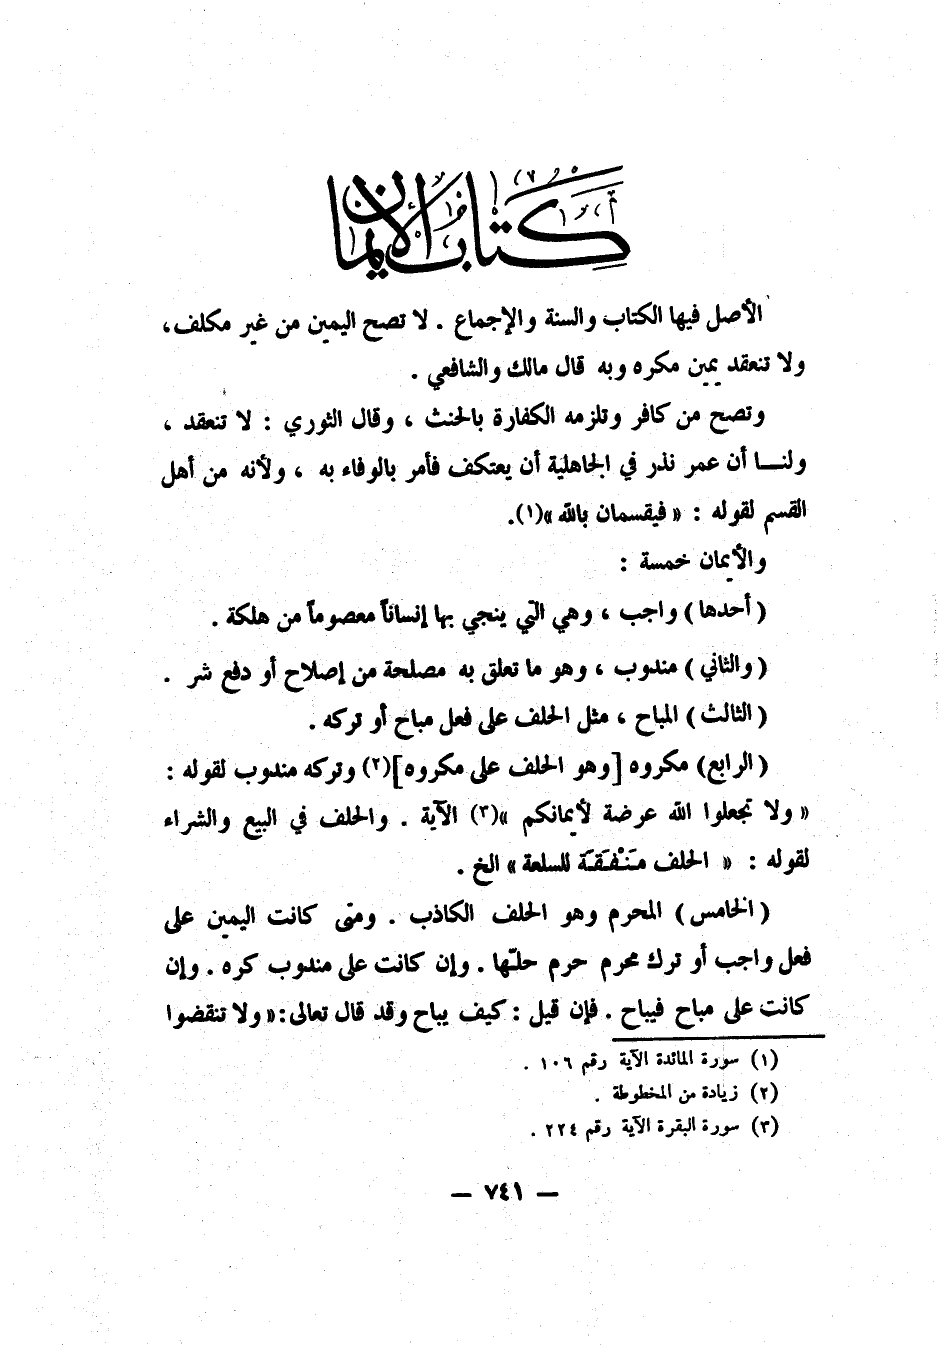 كتاب الأيمان
الأصل فيها الكتاب والسنة والإجماع . لا تصح اليمين من غير مكلف،
ولا تنعقد يمين مكره وبه قال مالك والشافعي .
وتصح من كافر وتلزمه الكفارة بالحنث ، وقال الثوري : لا تنعقد ،
ولنـــا أن عمر نذر في الجاهلية أن يعتكف فأمر بالوفاء به ، ولأنه من أهل
القسم لقوله : « فيقسمان بالله »(١).
والأيمان خمسة :
( أحدها ) واجب ، وهي التي ينجي بها إنساناً معصوماً من هلكة .
( والثاني ) مندوب ، وهو ما تعلق به مصلحة من إصلاح أو دفع شر .
( الثالث ) المباح ، مثل الحلف على فعل مباح أو تركه .
( الرابع) مكروه [وهو الحلف على مكروه](٢) وتركه مندوب لقوله :
« ولا تجعلوا الله عرضة لأيمانكم »(٣) الآية . والحلف في البيع والشراء
لقوله : « الحلف مَنْفَقَة للسلعة » الخ .
( الخامس ) المحرم وهو الحلف الكاذب . ومتى كانت اليمين على
فعل واجب أو ترك محرم حرم حلّها . وإن كانت على مندوب كره . وإن
كانت على مباح فيباح . فإن قيل : كيف يباح وقد قال تعالى:« ولا تنقضوا
(١) سورة المائدة الآية رقم ١٠٦ .
(٢) زيادة من المخطوطة .
(٣) سورة البقرة الآية رقم ٢٢٤ .
— ٧٤١ —